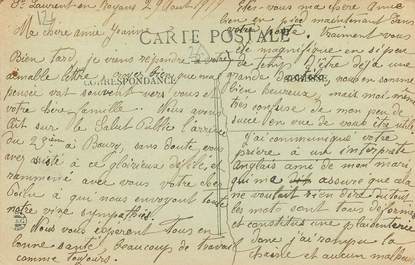 124
St Laurent-en-Royans 29 Août 1919
Ma chère amie Jeanne
CARTE POSTALE
CORRESPONDANCE
Bien tard, je viens répondre à votre
aimable lettre, croyez bien que ma
pensée va souvent vers vous et
votre chère famille. Nous avons
lu sur le Salut Public l'arrivée
du 23ème à Bourg, sans doute, vous
avez assisté à ce glorieux défilé, et
ramené avec vous votre cher
Poilu à qui nous envoyons toute
notre vive sympathie.
Nous vous espérons tous en
bonne santé, beaucoup de travail
comme toujours.
vous ma chère Amie
bien en maintenant dans
votre Vraiment vous
magnifique en si peu
de temps. D'être déjà une
grande nous en sommes
bien heureux, mais moi
très confuse de mon peu de
succès en vue de vous être utile
j'ai communiqué votre
prière à un interprète
anglais ami de mon mari
qui m'a assuré que cela
ne voulait rien dire du tout
les mots sont tous déformés
et constitue une plaisanterie
donc j'ai rompu la
chaîne et aucun malheur